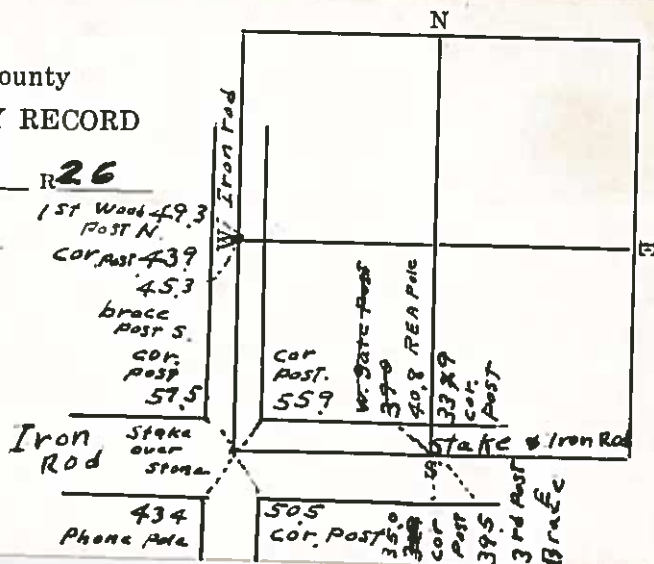 N
ounty
Y RECORD
R 26
Iron rod
1st Wood 49.3
Post N.
Cor. Post 43.9
45.3
brace
Post S.
cor.
post
57.5
W
E
Cor
Post.
55.9
W. Gate Post
40.8 REA Pole
cor. Post
Iron
Rod
Stake
over
stone
Stake & Iron Rod
S
43.4
Phone Pole
50.5
Cor. Post
35.0
cor
Post
39.5
3rd Post